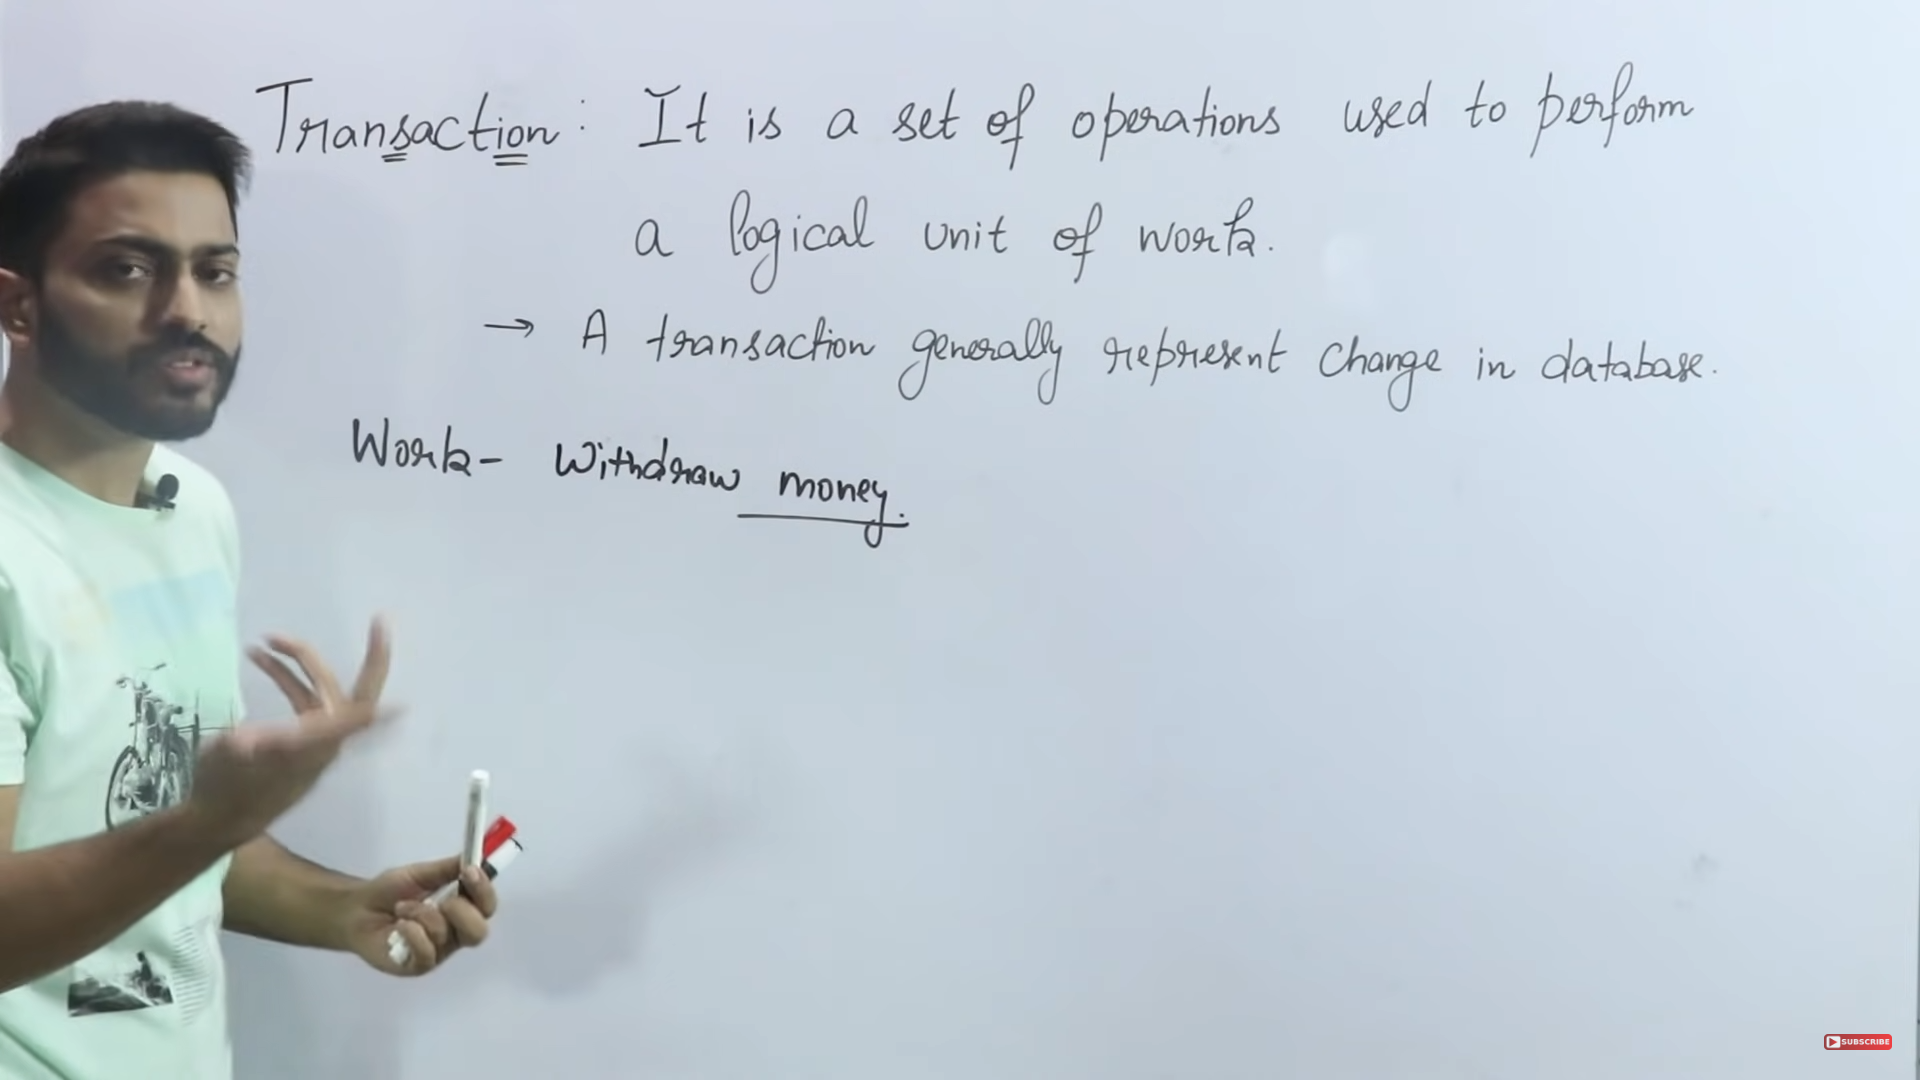 Transaction: It is a set of operations used to perform
a logical unit of work.
→ A transaction generally represent change in database.
Work- Withdraw money.
SUBSCRIBE